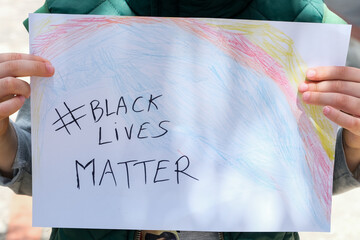 #BLACK
LIVES
MATTER